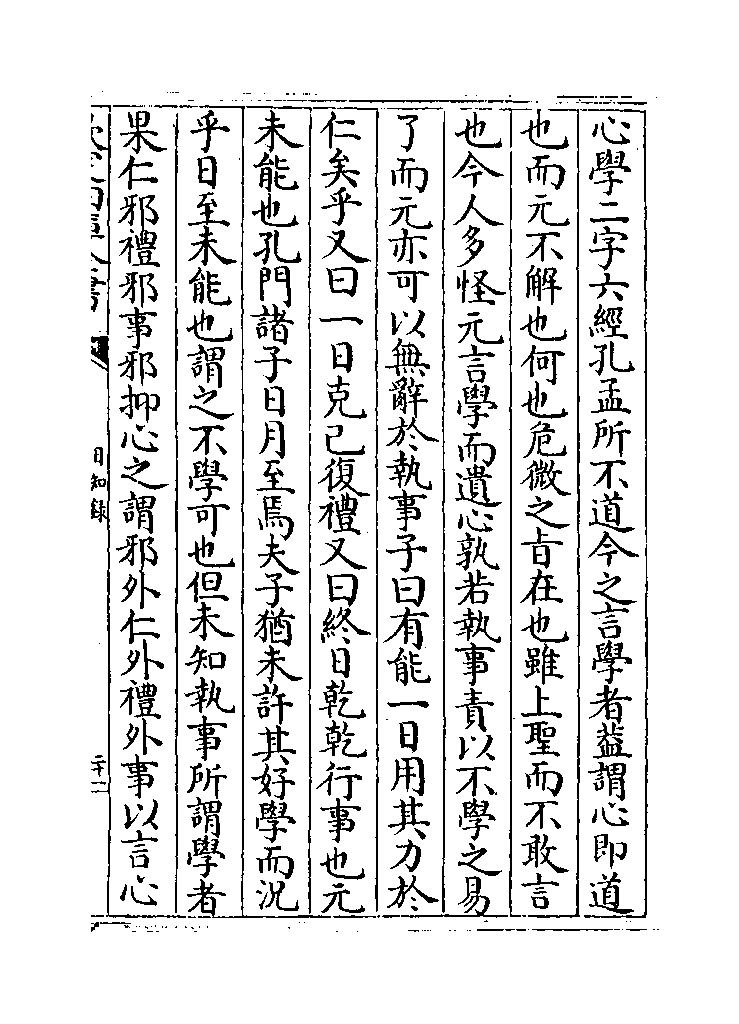 心學二字六經孔孟所不道今之言學者葢謂心即道
也而元不解也何也危微之㫖在也雖上聖而不敢言
也今人多怪元言學而遺心孰若執事責以不學之易
了而元亦可以無辭於執事子曰有能一日用其力於
仁矣乎又曰一日克己復禮又曰終日乾乾行事也元
未能也孔門諸子日月至焉夫子猶未許其好學而況
乎日至未能也謂之不學可也但未知執事所謂學者
果仁邪禮邪事邪抑心之謂邪外仁外禮外事以言心
日知錄